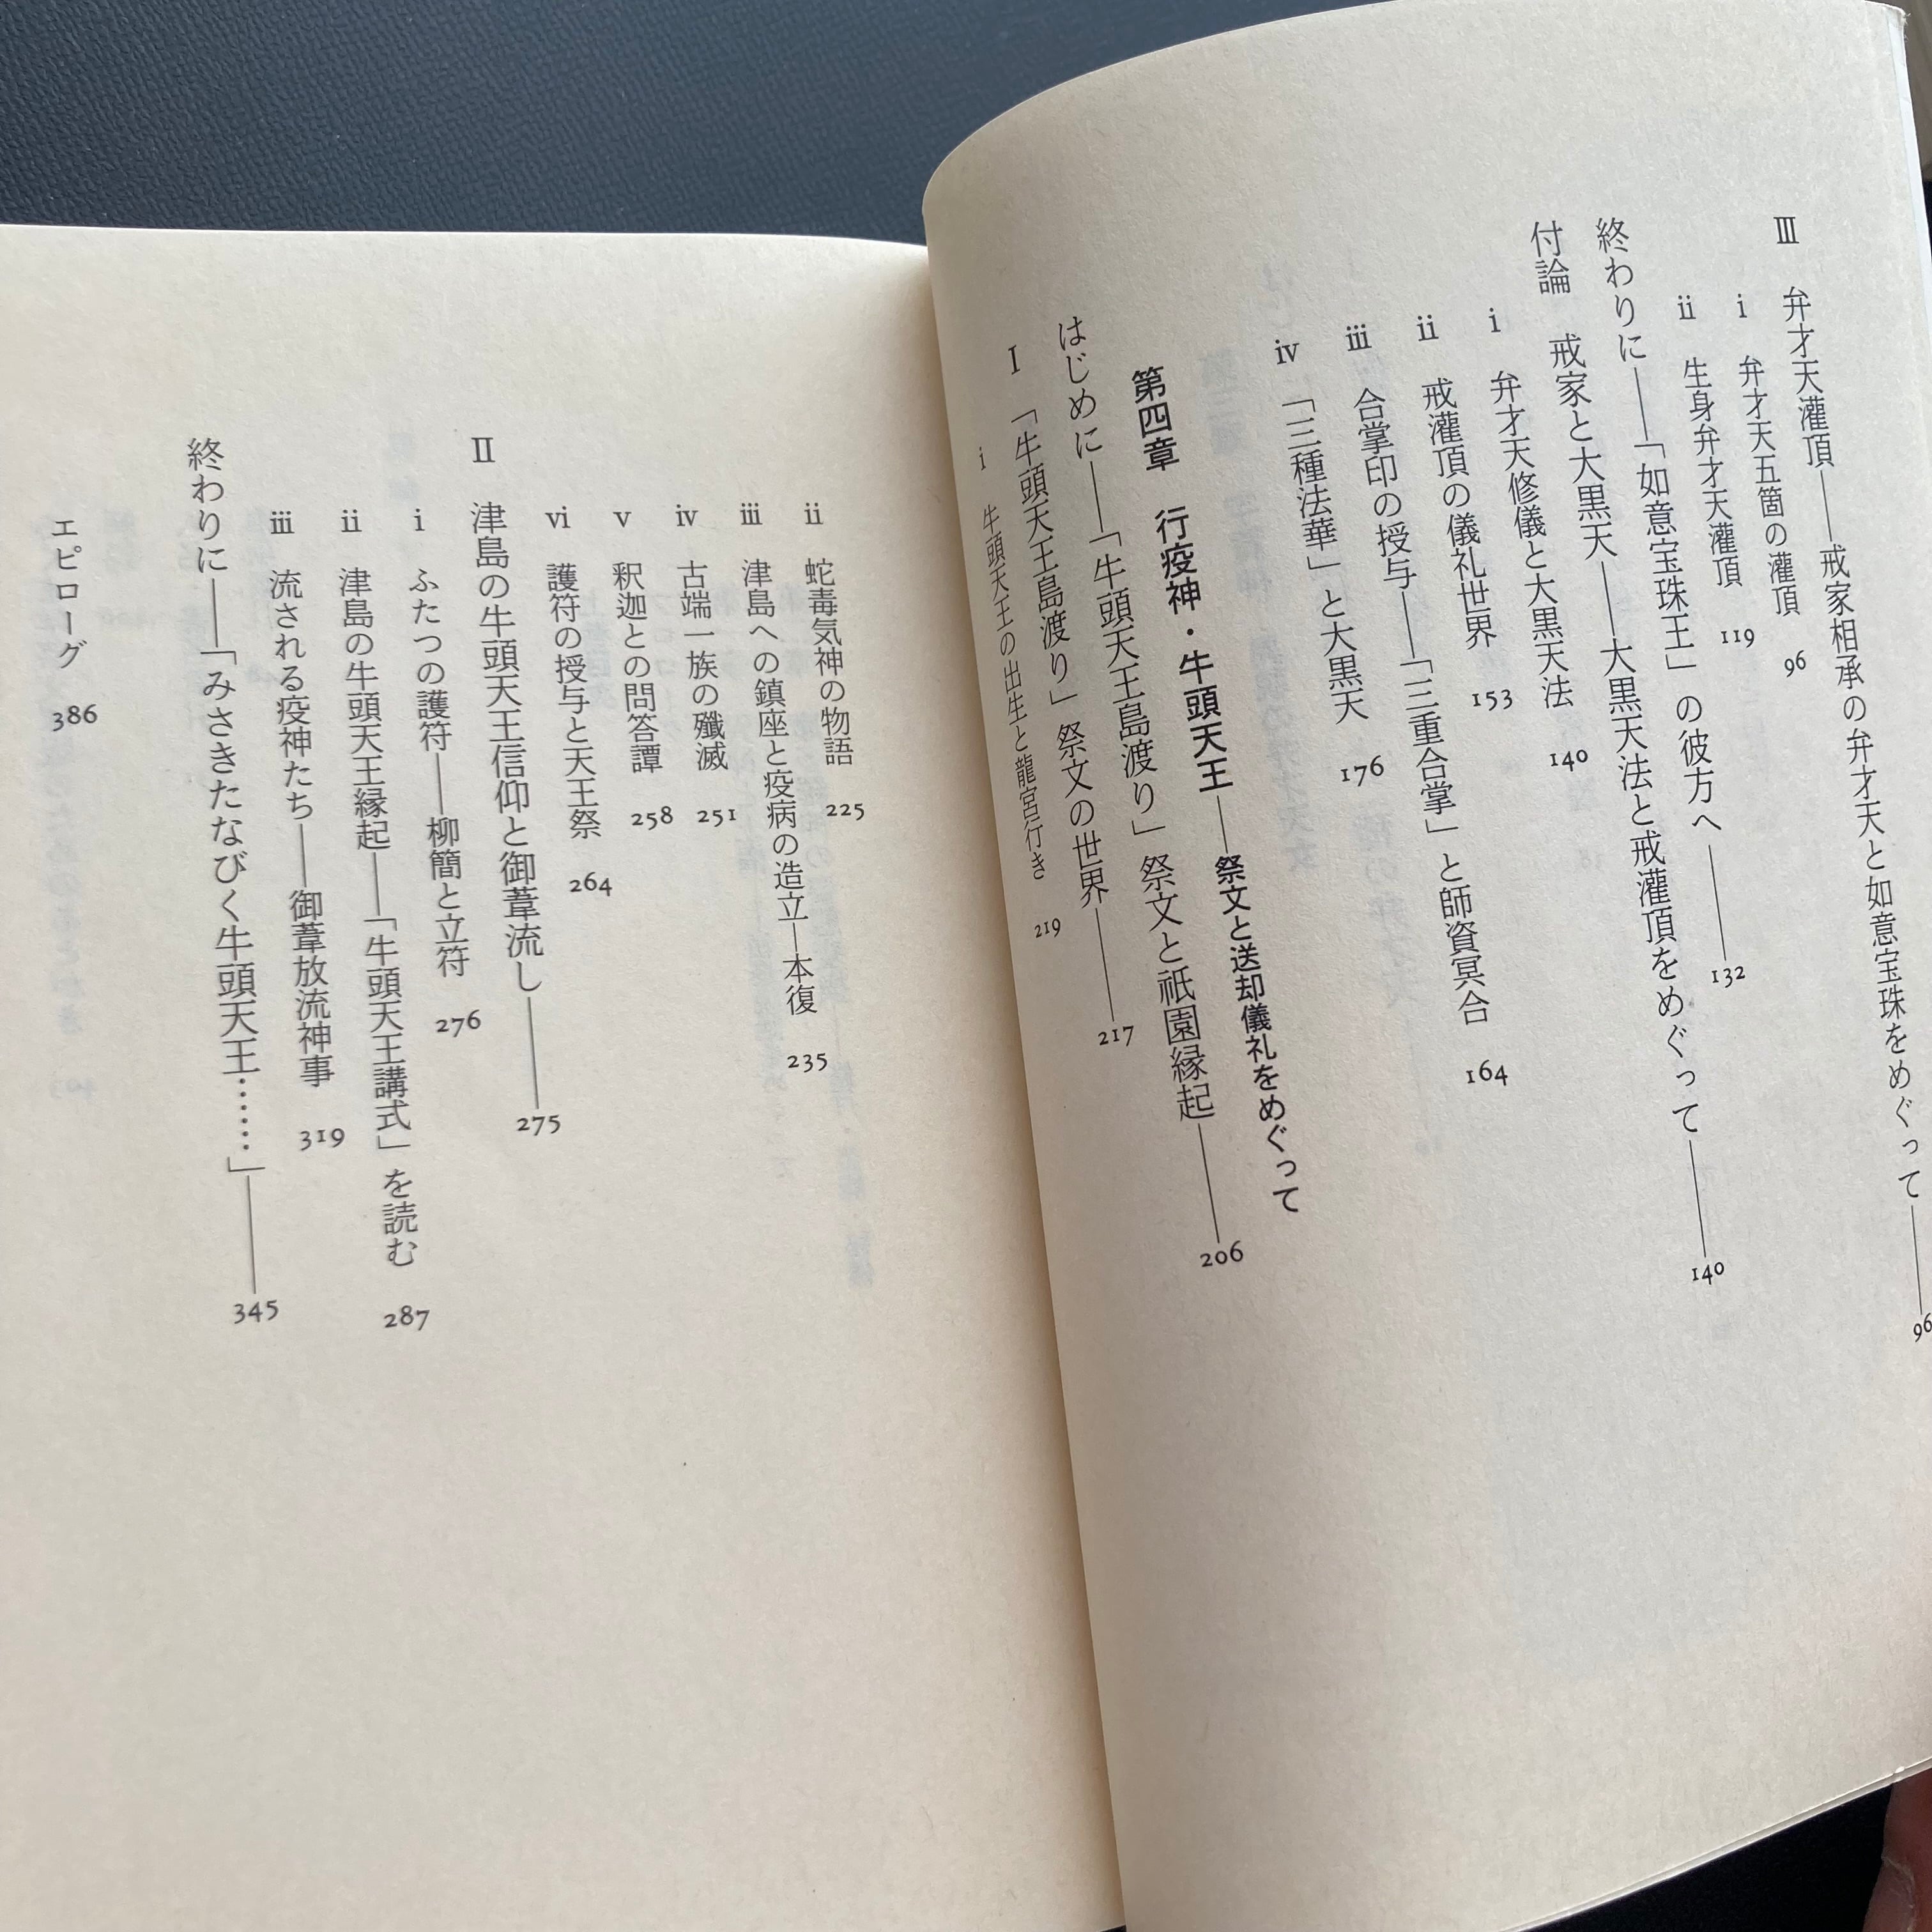 Ⅲ 弁才天灌頂――戒家相承の弁才天と如意宝珠をめぐって――96
ⅰ 弁才天五箇の灌頂 96
ⅱ 生身弁才天灌頂 119
終わりに――「如意宝珠王」の彼方へ――132
付論 戒家と大黒天――大黒天法と戒灌頂をめぐって――140
ⅰ 弁才天修儀と大黒天法 140
ⅱ 戒灌頂の儀礼世界 153
ⅲ 合掌印の授与――「三重合掌」と師資冥合 164
ⅳ 「三種法華」と大黒天 176
第四章 行疫神・牛頭天王――祭文と送却儀礼をめぐって
はじめに――「牛頭天王島渡り」祭文と祇園縁起――206
Ⅰ 「牛頭天王島渡り」祭文の世界――217
ⅰ 牛頭天王の出生と龍宮行き 219
ⅱ 蛇毒気神の物語 225
ⅲ 津島への鎮座と疫病の造立―本復 235
ⅳ 古端一族の殲滅 251
ⅴ 釈迦との問答譚 258
ⅵ 護符の授与と天王祭 264
Ⅱ 津島の牛頭天王信仰と御葦流し――275
ⅰ ふたつの護符――柳簡と立符 276
ⅱ 津島の牛頭天王縁起――「牛頭天王講式」を読む 287
ⅲ 流される疫神たち――御葦放流神事 319
終わりに――「みさきたなびく牛頭天王……」――345
エピローグ 386